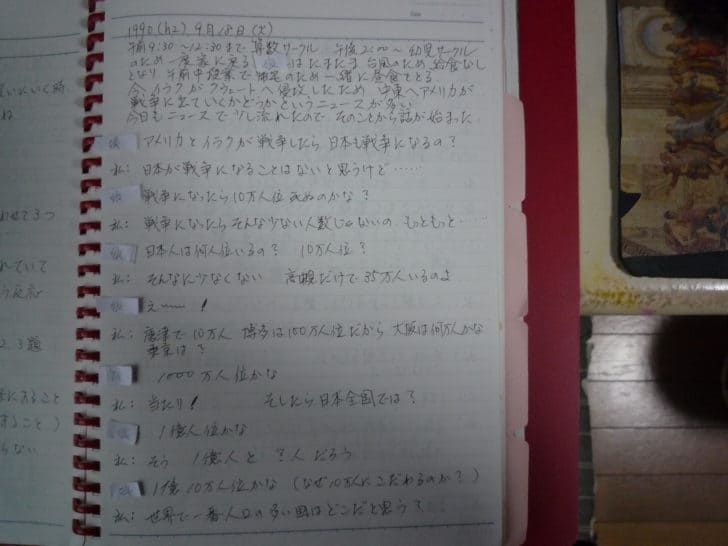 1990 (h2) 9月18日 (火)
午前9:30～12:30まで 算数サークル 午後2:00～ 幼児サークル
のため 一度家に戻る 彼はたまたま 台風のため 給食なし
となり 午前中授業で 帰宅のため 一緒に昼食をとる
今、イラクがクウェートへ侵攻したため 中東へアメリカが
戦争に出ていくかどうかというニュースが多い
今日もニュースで少し流れたので そのことから話が始まった
彼 アメリカとイラクが戦争したら 日本も戦争になるの？
私: 日本が戦争になることはないと思うけど……
彼 戦争になったら10万人位死ぬのかな？
私: 戦争になったらそんな少ない人数じゃないの もっともっと……
彼 日本人は何人位いるの？ 10万人位？
私: そんなに少なくない 高槻だけで35万人いるのよ
彼 え～～！
私: 唐津で10万人 博多は100万人位だから 大阪は何万人かな
東京は？
彼 1000万人位かな
私: 当たり！ そしたら日本全国では？
彼 1億人位かな
私: そう 1億人と？人だろう
彼 1億10万人位かな (なぜ10万人にこだわるのか？)
私: 世界で一番人口の多い国はどこだと思う？
いにいく時
ね
わせて3つ
れていて
う反応
2.3題
にあること
すること)
らない